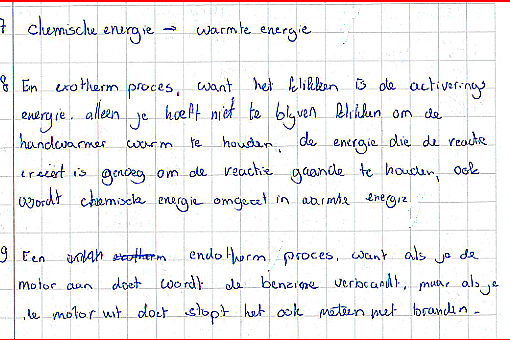 7 chemische energie → warmte energie
8 Een exotherm proces, want het klikken is de activerings
energie. alleen je hoeft niet te blyven klikken om de
handwarmer warm te houden, de energie die de reactie
creëert is genoeg om de reactie gaande te houden, ook
wordt chemische energie omgezet in warmte energie
9 Een endotherm proces, want als je de
motor aan doet wordt de benzine verbrandt, maar als je
de motor uit doet stopt het ook meteen met branden.